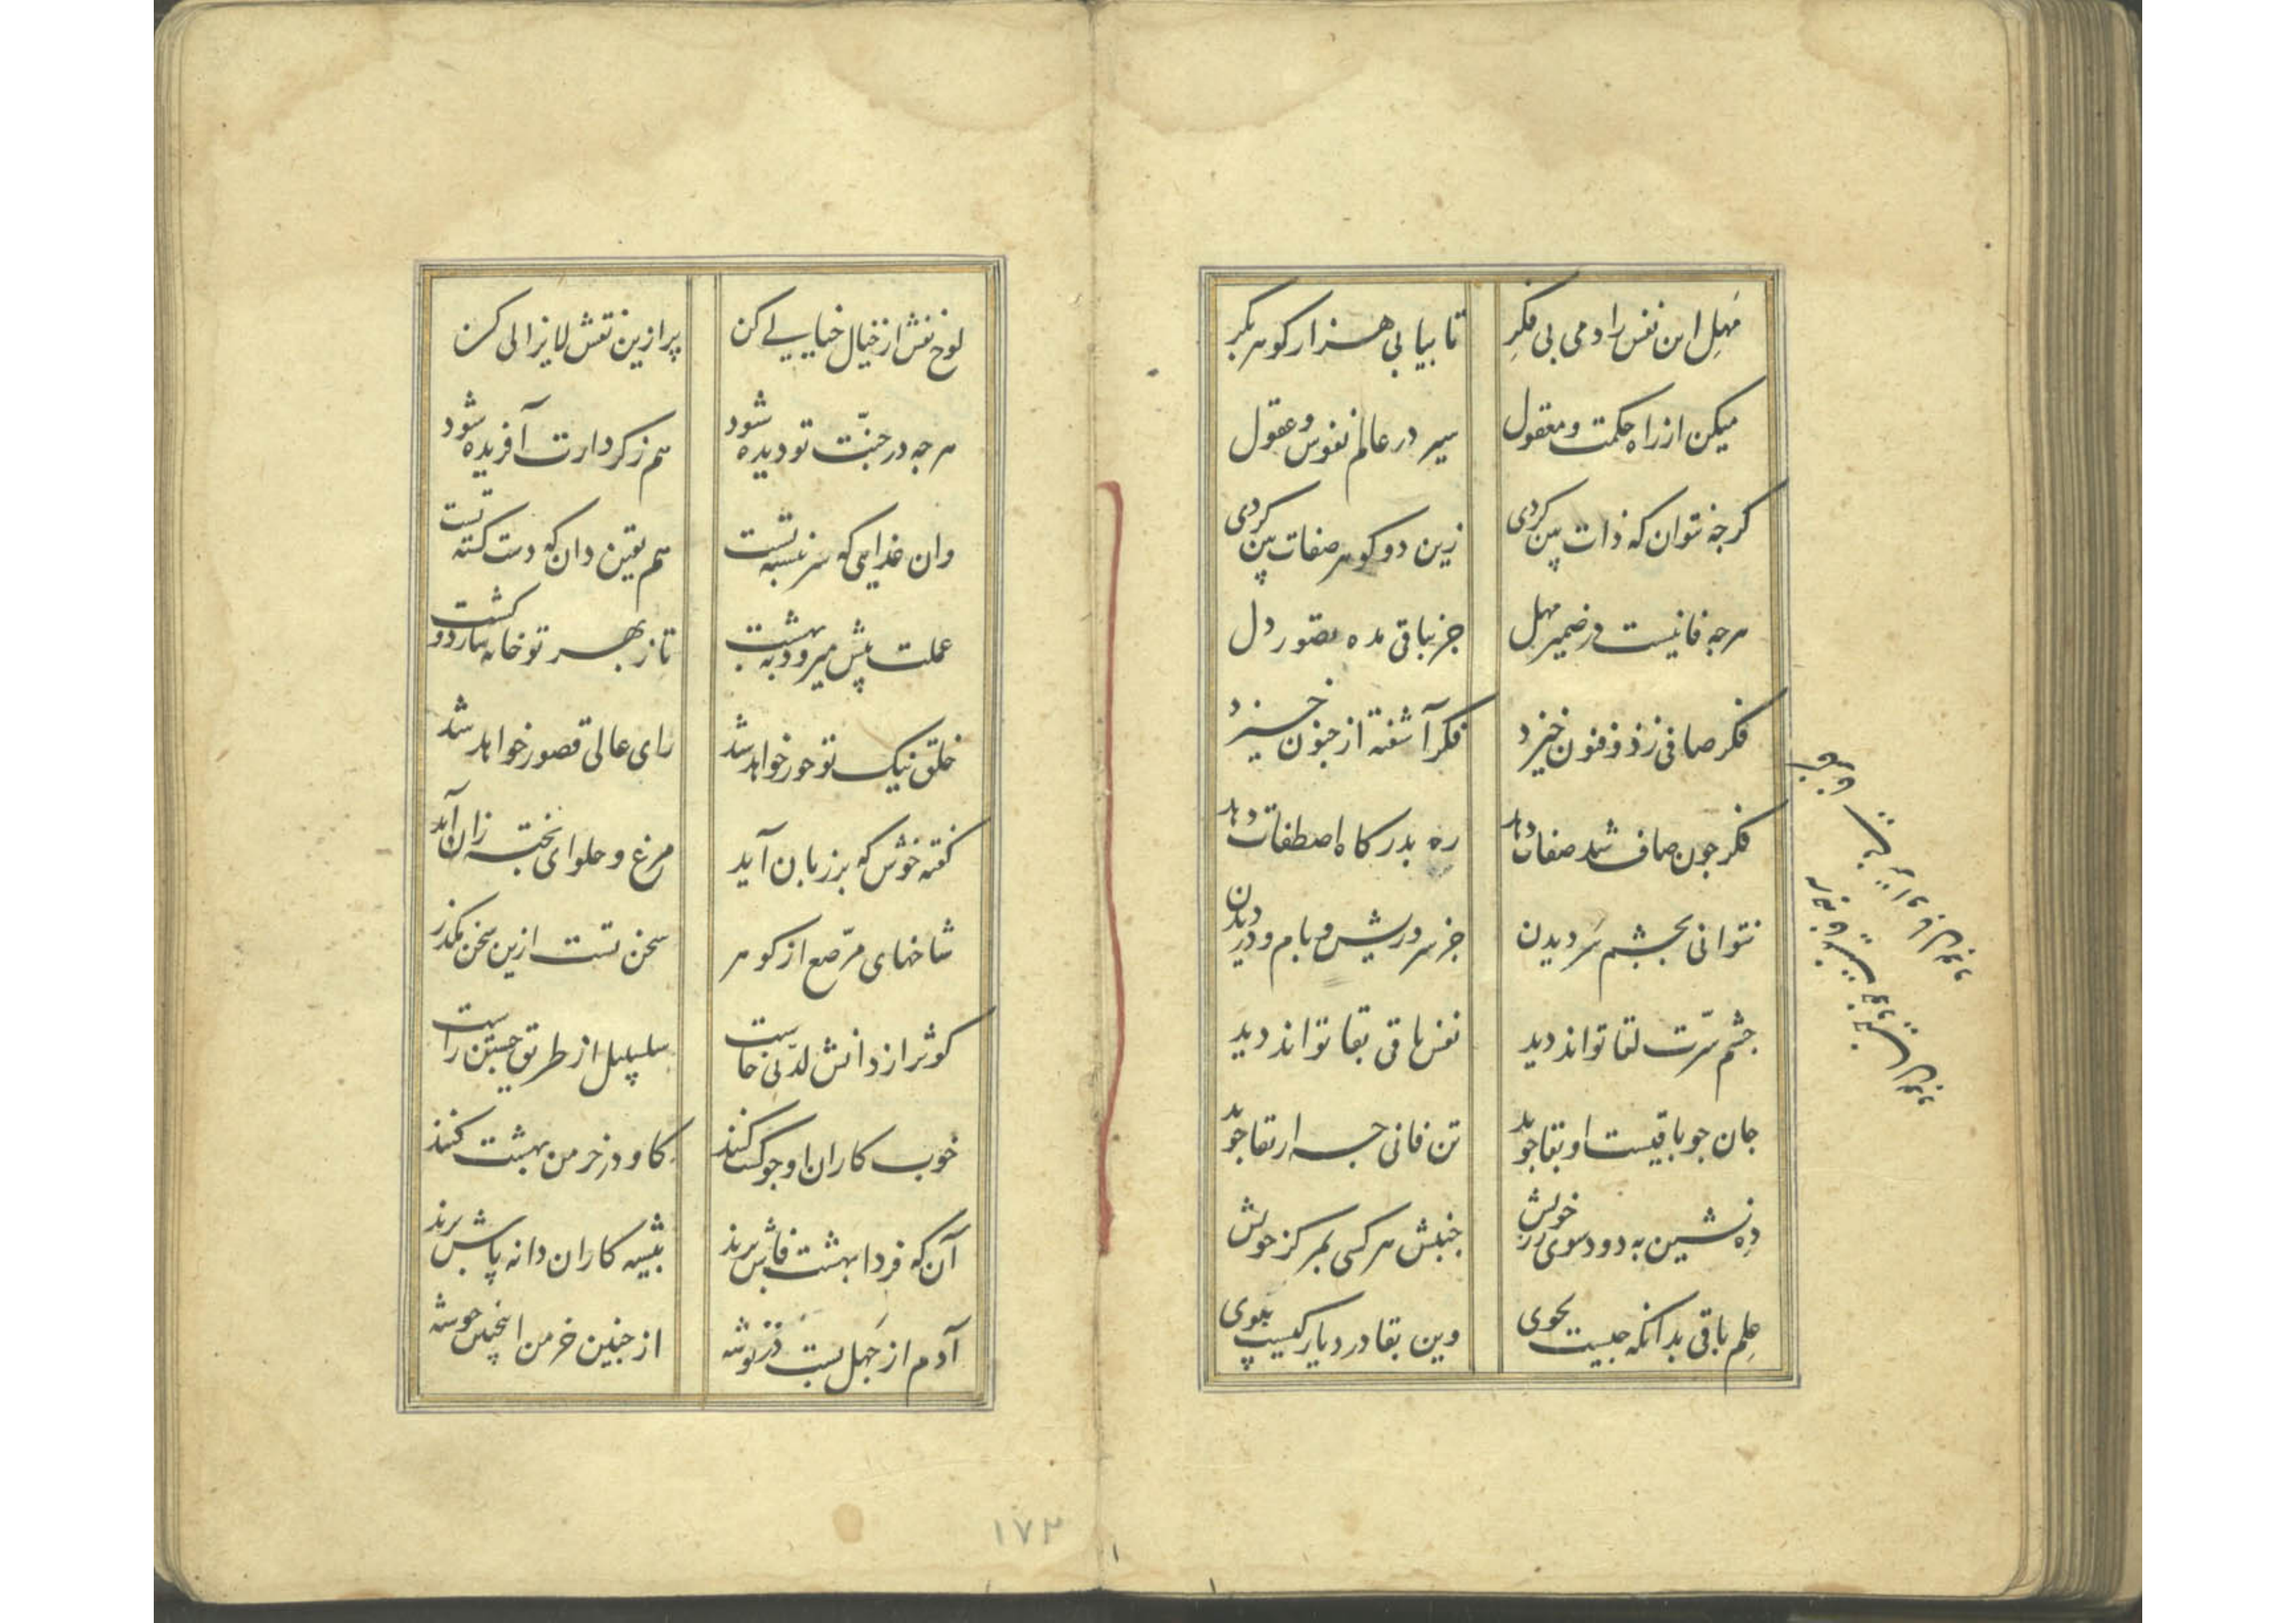 مهل این نفس را دمی بی فکر
تا بیابی هزار گوهر بکر
میکن از راه حکمت و معقول
سیر در عالم نفوس و عقول
گرچه نتوان که ذات بین گردی
زین دو گوهر صفات بین گردی
هرچه فانیست در ضمیر مهل
جز بباقی مده تصور دل
فکر صافی ز ذوفنون خیزد
فکر آشفته از جنون خیزد
فکر چون صاف شد صفات دهد
ره بدرگاه اصطفات دهد
نتوانی بچشم سر دیدن
جز سر و ریش و بام و در دیدن
چشم سرت لقا تواند دید
نفس باقی بقا تواند دید
جان چو باقیست او بقا جوید
تن فانی چرا بقا جوید
ده نشین به دود سوی رز خویش
جنبش هر کسی بمرکز خویش
علم باقی بدانکه چیست بجوی
وین بقا در دیار کیست بپوی
لوح نفش از خیال خیالی کن
پر ازین نقش لایزالی کن
هرچه در جنت تو دیده شود
هم ز کردارت آفریده شود
وان غذایی که سر نبشته تست
هم یقین دان که دست کشته تست
عملت پیش میرود به بهشت
تا ز بهر تو خانه سازد و کشت
خلق نیک تو حور خواهد شد
رای عالی قصور خواهد شد
گفته خوش که بر زبان آید
مرغ و حلوای پخته زان آید
شاخهای مرصع از گوهر
سخن تست ازین سخن مگذر
کوثر از دانش لدنی خاست
سلسبیل از طریق جستن راست
خوب کاران او چو کشت کنند
گاو در خرمن بهشت کنند
آن که فردا بهشت فاش برند
بیشه کاران دانه پاش برند
آدم از جهل بست در توشه
از چنین خرمن انچنین خوشه
۱۷۲